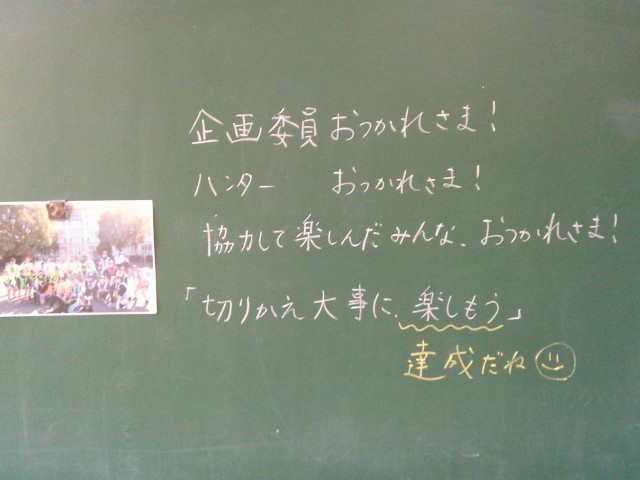 企画委員おつかれさま!
ハンター おつかれさま!
協力して楽しんだみんな、おつかれさま!
「切りかえ大事に、楽しもう」
達成だね